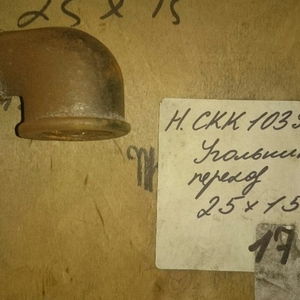 25 x 15
Н. СКК 103
Угольни
перехо
25 x 15
17